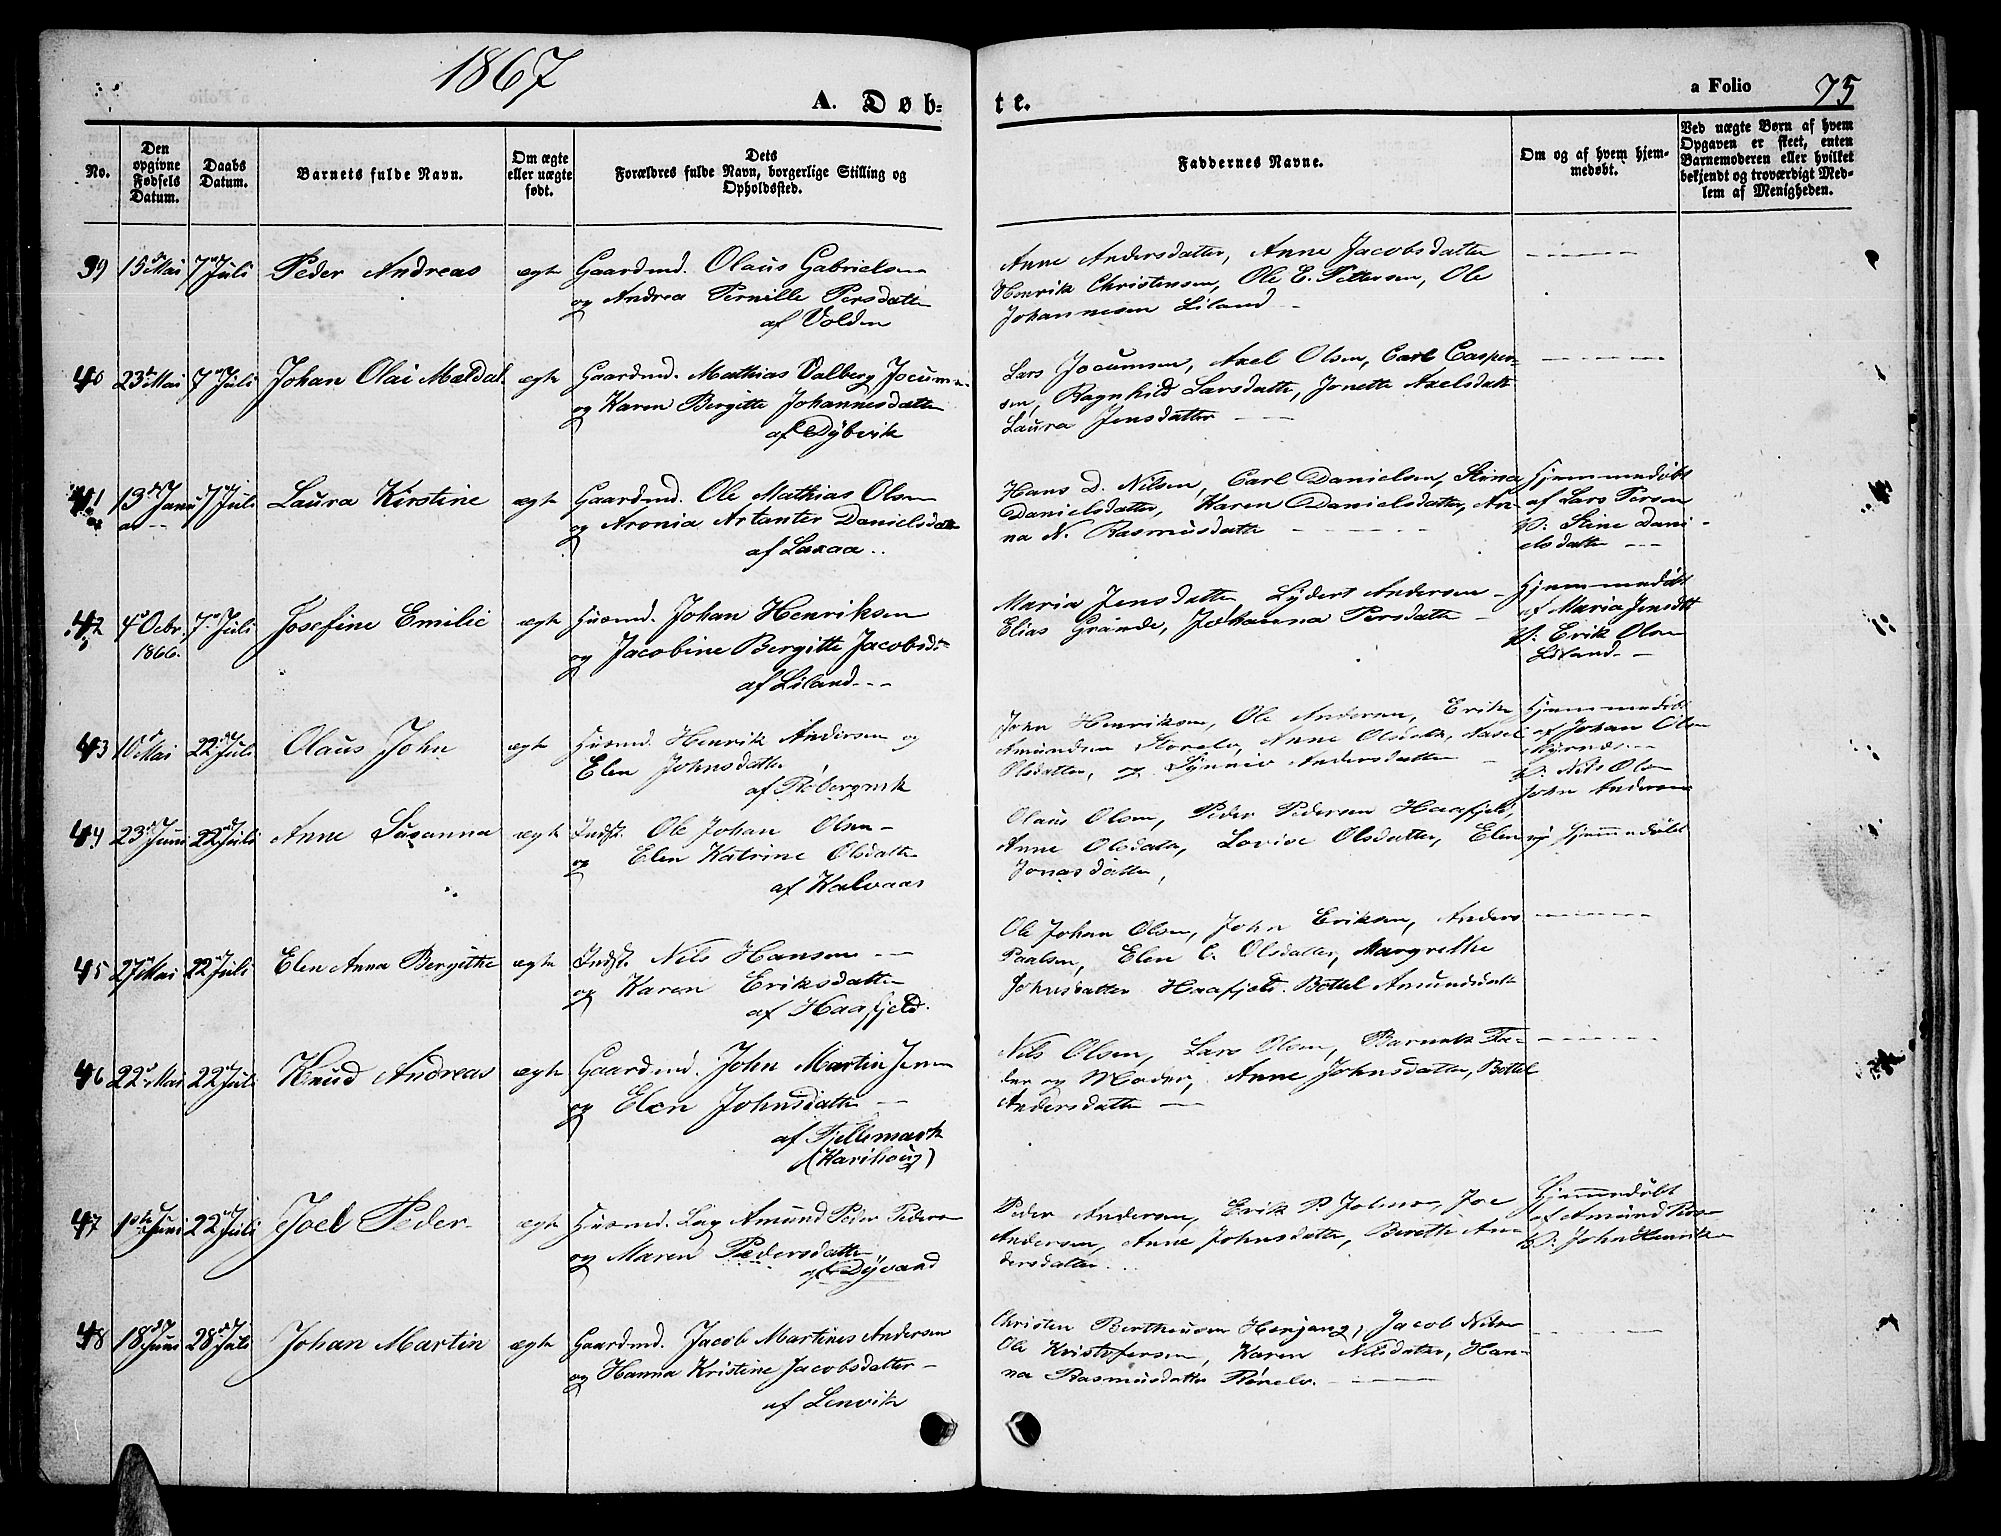 1867
A. Døb-
te.
a Folio 75
No.
Den opgivne Fødsels Datum.
Daabs Datum.
Barnets fulde Navn.
Om ægte eller uægte født.
Dets Forældres fulde Navn, borgerlige Stilling og Opholdssted.
Faddernes Navne.
Om og af hvem hjemmedøbt.
Ved uægte Børn af hvem Opgaven er skeet, enten Barnemoderen eller hvilket bekjendt og troværdigt Medlem af Menigheden.
39 15de Mai 7de Juli Peder Andreas ægte Gaardmd. Olaus Gabrielsen
og Andrea Pernille Persdatter
af Volden
Anne Andersdatter, Anne Jacobsdatter
Henrik Christensen, Ole E. Pettersen, Ole
Johannesen Liland -
40 23de Mai 7de Juli Johan Olai Mældal ægte Gaardmd. Mathias Valberg Jocumsen
og Karen Bergitte Johannesdatter
af Dybvik
Lars Jocumsen, Axel Olsen, Carl Casper-
sen, Ragnhild Larsdatter, Jonette Axelsdatt
Laura Jensdatter
41 13de Janu- 7de Juli Laura Kirstine ægte Gaardmd. Ole Mathias Olsen
ar
og Aronia Artanter Danielsdatter
af Laxaa
Hans D. Nilsen, Carl Danielsen, Stina
Danielsdatter, Karen Danielsdatter, An-
na N. Rasmusdatter
Hjemmedøbt
af Lars Persen
V: Stine Dani-
elsdatter
42 4de Octbr. 7de Juli Josefine Emilie ægte Husmd. Johan Henriksen
1866.
og Jacobine Bergitte Jacobsdt
af Liland
Maria Jensdatter Lydert Andersen -
Elias Grande, Johanna Persdatter -
Hjemmedøbt
af Maria Jensdtt
V: Erik Olsen
Liland
43 10de Mai 22de Juli Olaus John ægte Husmd. Henrik Andersen og
Elen Johnsdatter
af Robergvik
John Henriksen, Ole Andersen, Erik
Amundsen Storelv, Anne Olsdatter,
Olsdatter, og Synniv Andersdatter
Hjemmedøbt
af Johan Olsen
V: Nils Olsen
John Andersen
44 23de Juni 22de Juli Anne Susanna ægte Indst. Ole Johan Olsen -
og Elen Katrine Olsdatter
af Kalvaas
Olaus Olsen, Peder Pedersen Haafjeld,
Anne Olsdatter, Lovise Olsdatter, Elen
Jonasdatter,
ej hjemmedøbt
45 27de Mai 22de Juli Elen Anna Bergithe ægte Indst. Nils Hansen
og Karen Eriksdatter
af Haafjeld.
Ole Johan Olsen, John Eriksen, Anders
Paalsen, Elen C. Olsdatter, Margrethe
Johnsdatter Haafjeld. Bottel Amundsdatt
46 22de Mai 22de Juli Knud Andreas ægte Gaardmd. John Martin Jensen
og Elen Johnsdatter
af Fjellemark
(Karihaug)
Nils Olsen, Lars Olsen, Barnets Fa-
der og Moder, Anne Johnsdatter, Bottel
Andersdatter
47 1ste Juni 22de Juli Joel Peder ægte Husmd. Lag Amund Peder Pedersen
og Maren Pedersdatter
af Dyvand
Peder Andersen, Erik P. Johnsen, Joe
Andersen, Anne Johnsdatter, Berethe An-
dersdatter.
Hjemmedøbt
af Amund Persen
V: John Henriksen
48 18de Juni 28de Juli Johan Martin ægte Gaardmd. Jacob Martines Andersen
og Hanna Kristine Jacobsdatter -
af Lenvik
Christen Bertheusen Herjang, Jacob Nilsen
Ole Kristofersen, Karen Nilsdatter, Han-
na Rasmusdatter Rønelv.